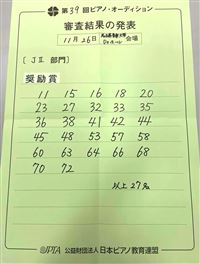 第39回ピアノ・オーディション
審査結果の発表
11月26日
会場
[JⅡ 部門]
奨励賞
11 15 16 18 20
23 27 32 33 35
36 38 41 42 44
45 48 53 57 58
60 63 64 66 68
70 72
以上27名
JPTA 公益財団法人日本ピアノ教育連盟